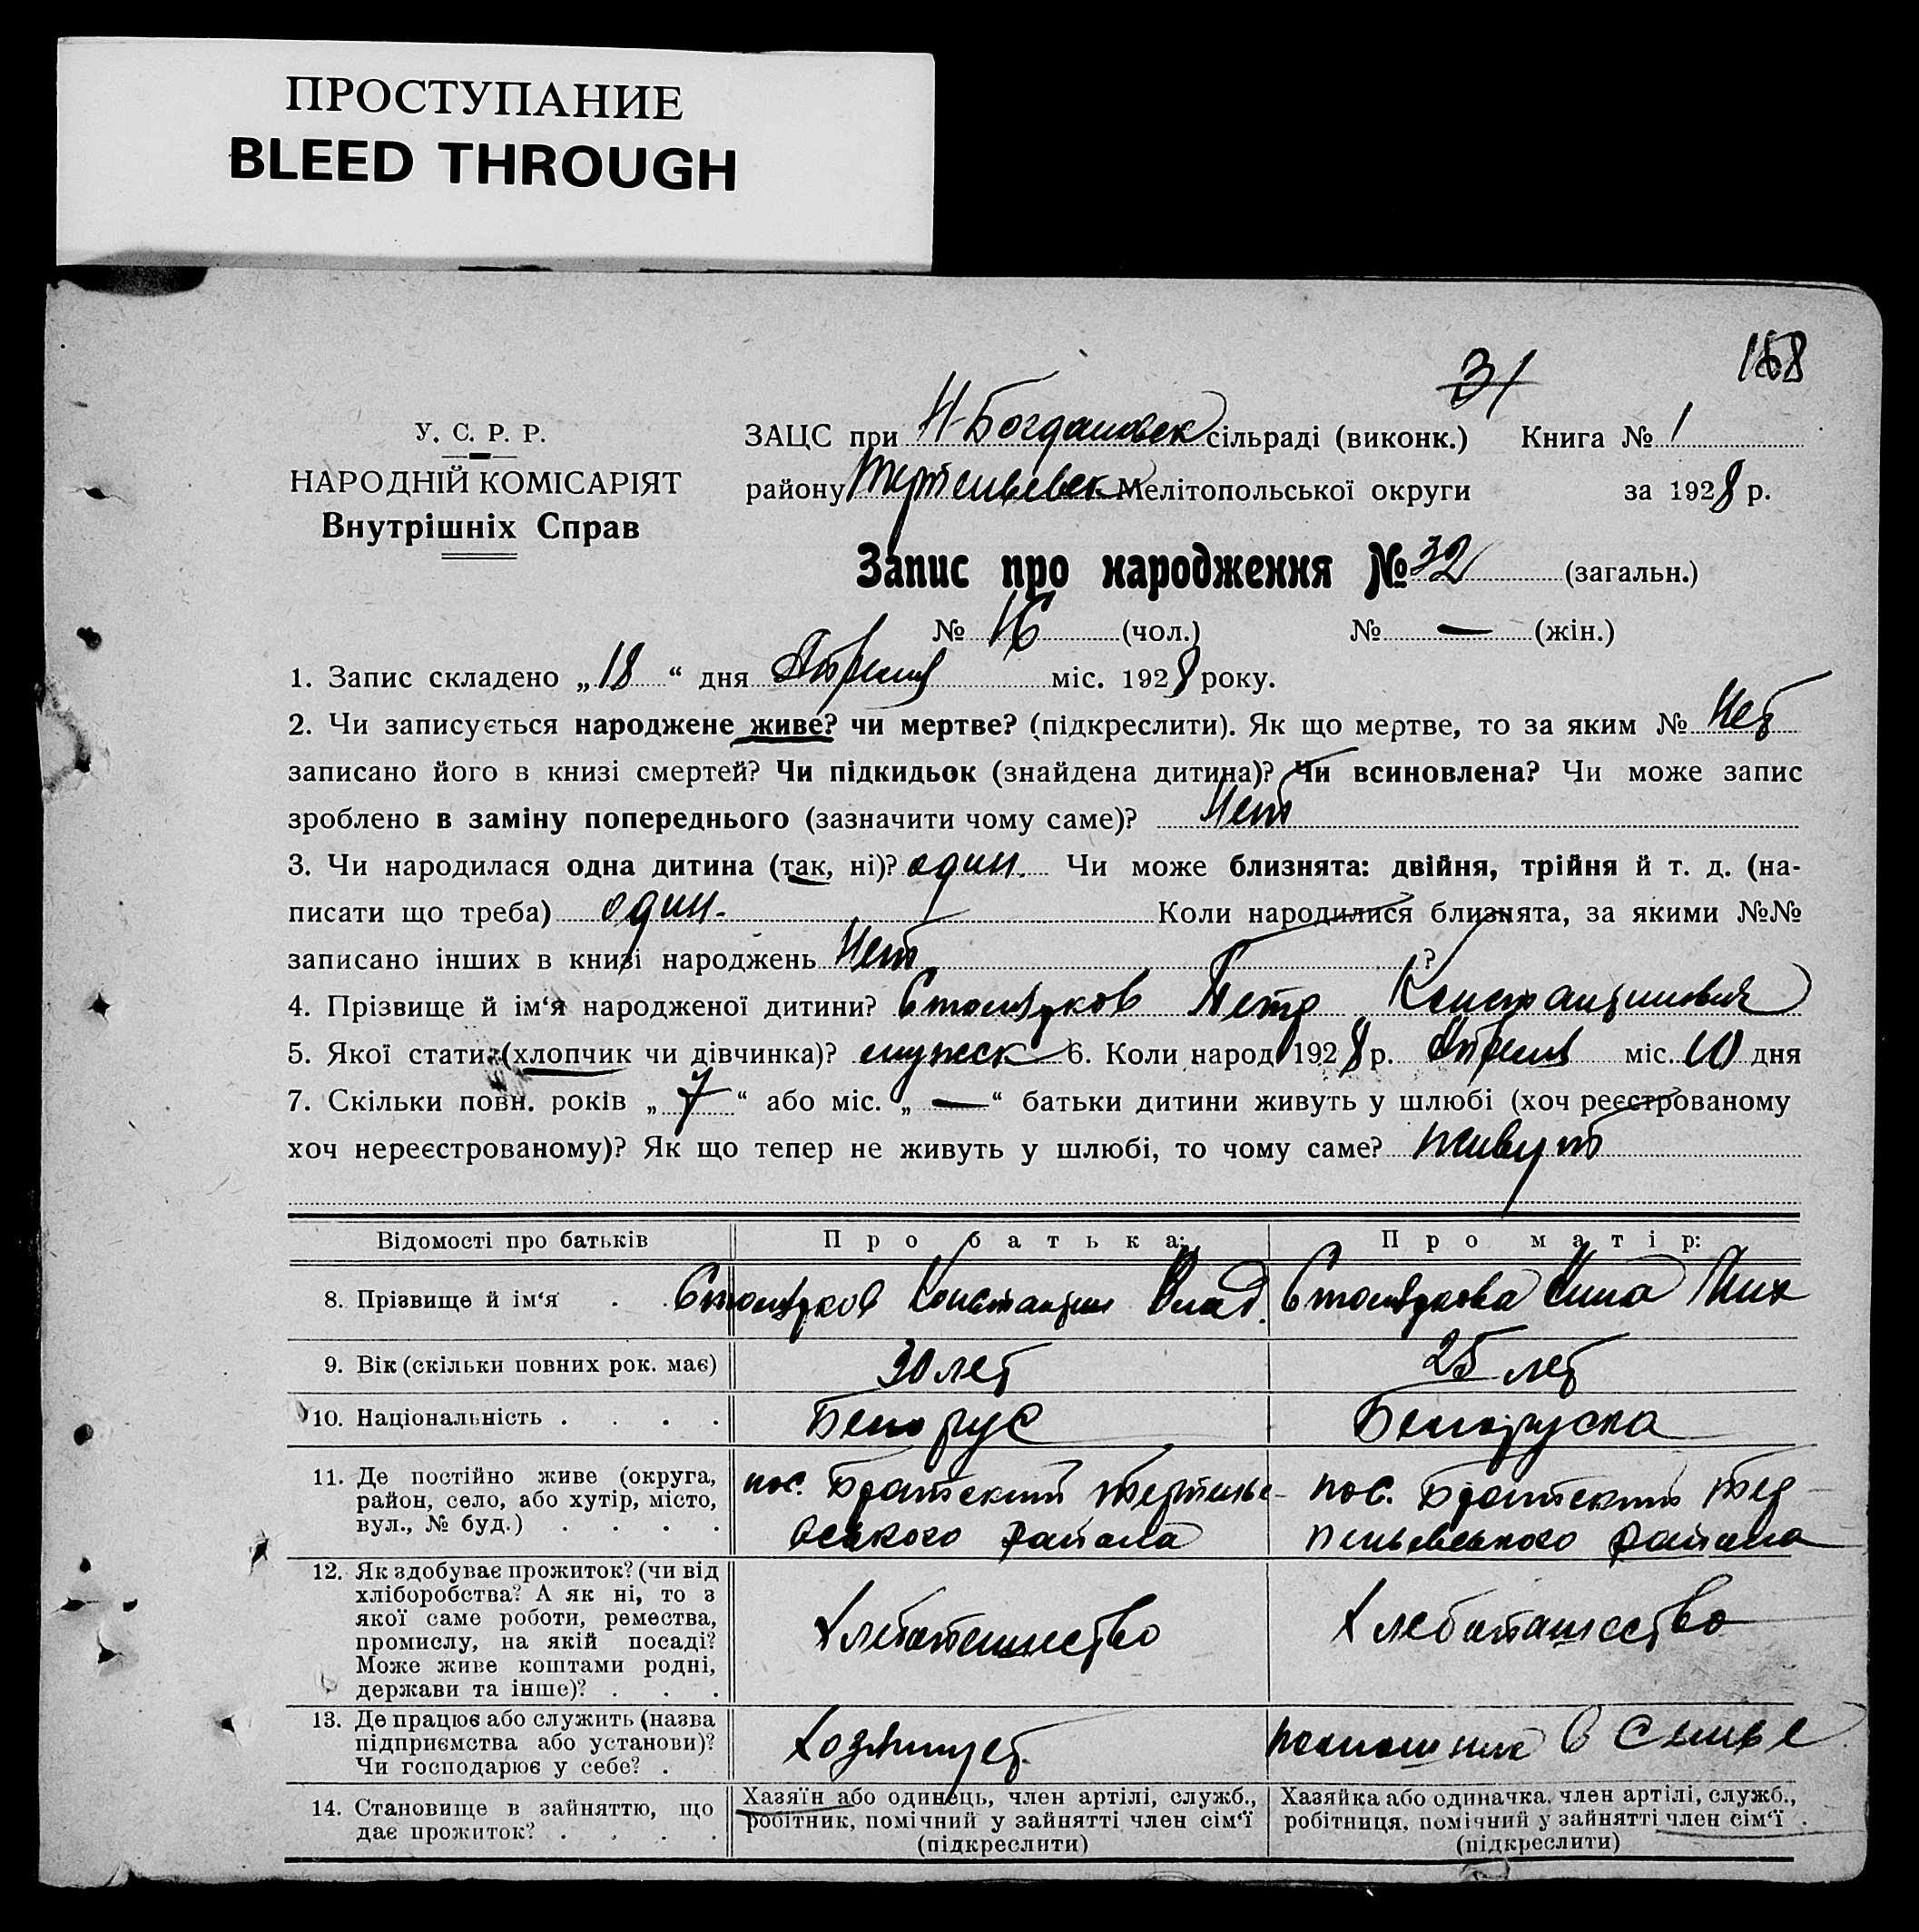 ПРОСТУПАНИЕ
BLEED THROUGH
31
168
У. С. Р. Р.
НАРОДНІЙ КОМІСАРІЯТ
Внутрішніх Справ
ЗАЦС при Н-Богдановск сільраді (виконк.) Книга № 1
району Терпеньевск Мелітопольської округи за 1928 р.
Запис про народження № 32 (загальн.)
№ 16 (чол.) № — (жін.)
1. Запис складено „18“ дня Апреля міс. 1928 року.
2. Чи записується народжене живе? чи мертве? (підкреслити). Як що мертве, то за яким № Нет
записано його в книзі смертей? Чи підкидьок (знайдена дитина)? Чи всиновлена? Чи може запис
зроблено в заміну попереднього (зазначити чому саме)? Нет
3. Чи народилася одна дитина (так, ні)? один. Чи може близнята: двійня, трійня й т. д. (на-
писати що треба) один. Коли народилися близнята, за якими №№
записано інших в книзі народжень Нет ?
4. Прізвище й ім‘я народженої дитини? Петр Константинович
5. Якої стати (хлопчик чи дівчинка)? мужск 6. Коли народ 1928 р. Апреля міс. 10 дня
7. Скільки повн. років „7“ або міс. „—“ батьки дитини живуть у шлюбі (хоч реєстрованому
хоч нереєстрованому)? Як що тепер не живуть у шлюбі, то чому саме? живут
Відомості про батьків Про батька: Про матір:
8. Прізвище й ім‘я . . Константин Влад. Нина Мих
9. Вік (скільки повних рок. має) 30 лет 25 лет
10. Національність . . . . Белорус Белоруска
11. Де постійно живе (округа,
район, село, або хутір, місто,
вул., № буд.) . . . .
пос. Братский Терпенье-
вського района
пос. Братский Тер-
пеньевського района
12. Як здобуває прожиток? (чи від
хліборобства? А як ні, то з
якої саме роботи, ремества,
промислу, на якій посаді?
Може живе коштами родні,
держави та інше)? . . .
Хлебопашество
Хлебопашество
13. Де працює або служить (назва
підприємства або установи)?
Чи господарює у себе? .
Хозяинует.
помощник в семье
14. Становище в зайняттю, що
дає прожиток? . . . .
Хазяїн або одинець, член артілі, служб.,
робітник, помічний у зайнятті член сім‘ї
(підкреслити)
Хазяйка або одиначка, член артілі, служб.,
робітниця, помічний у зайнятті член сім‘ї .
(підкреслити)